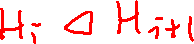 Hi ◁ Hi+1